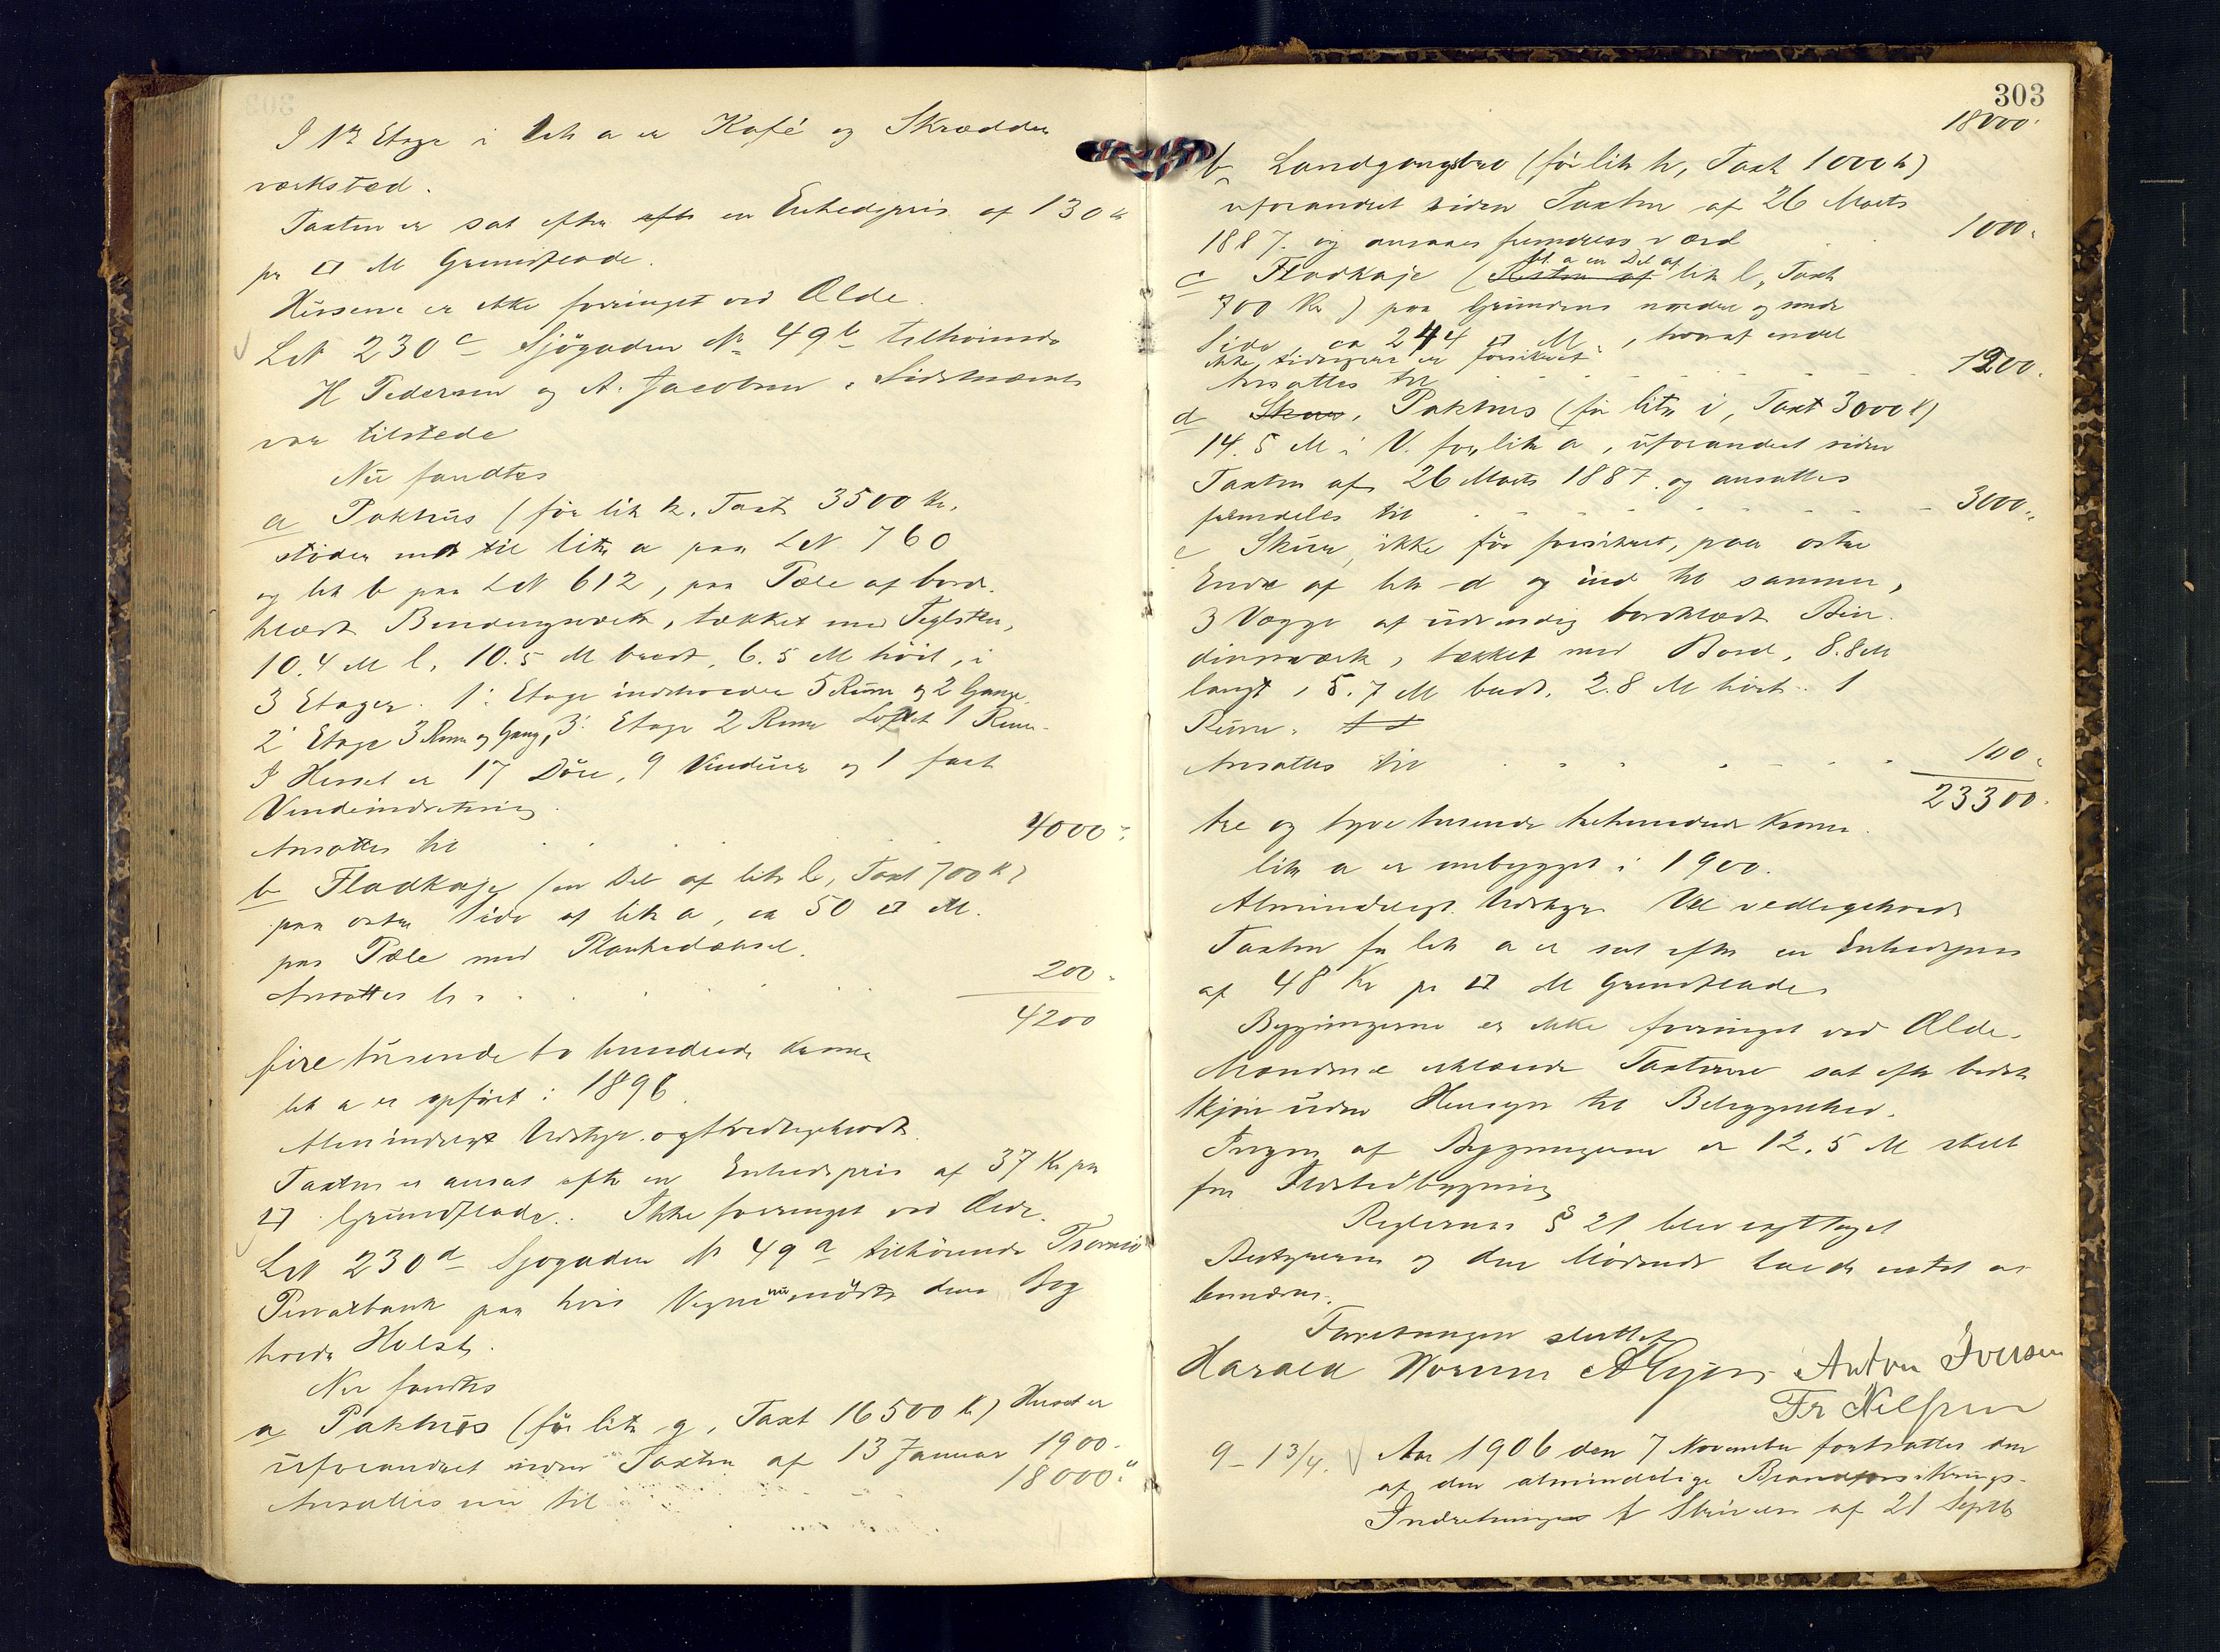 I 1ste Etage i Litr a er Kafé og Skrædder
værksted.
Taxten er sat efter efter en Enhedspris af 130 kr
pr □ M Grundflade.
Husene er ikke forringet ved Ælde.
LN 230c Sjøgaden No 49b tilhørende
H Pedersen og A. Jacobsen. Sidstnævnte
var tilstede
Nu fandtes
a Pakhus (før litr k. Taxt 3500 Kr.
støder med til litr a paa LN 760
og litr b paa LN 612, paa Pæle af bord-
klædt Bindingsværk, tækket med Teglsten,
10.4 M l. 10.5 M bredt, 6.5 M høit, i
3 Etager. 1: Etage indeholder 5 Rum og 2 Gange.
2: Etage 3 Rum og Gang, 3: Etage 2 Rum Loftet 1 Rum.
I Huset er 17 Døre, 9 Vinduer og 1 fast
Vindeindretning.
Ansattes til 4000.
b Fladkaje (en Del af litr l, Taxt 700 Kr)
paa østre Side af litr a, ca 50 □ M.
paa Pæle med Plankedæksel.
Ansattes til 200.
4200
fire tusende to hundrede Kroner
litr a er opført i 1896.
Almindeligt Udstyr. og vedligeholdt.
Taxten er ansat efter en Enhedspris af 37 Kr pr
□ Grundflade. Ikke forringet ved Ælde.
LN 230d Sjøgaden No 49a tilhørende Tromsø
Privatbank paa hvis Vegne nu mødte dens Bog
holder Holst.
Nu fandtes
a Pakhus (før litr g, Taxt 16500 kr) Huset er
uforandret siden Taxten af 13 Januar 1900.
Ansattes nu til 18000.
303
18000.
b Landgangsbro (før litr h, Taxt 1000 kr)
uforandret siden Taxten af 26 Marts
1887. og ansaaes fremdeles værd 1000.
bl. a en Del af
c Fladkaje (Resten af litr l, Taxt
700 Kr) paa Grundens nordre og søndre
Side, ca 244 □ M., hvoraf endel
ikke tidligere er forsikret
Ansattes til 1200.
d Skur, Pakhus (før litr i, Taxt 3000 k)
14.5 M i V. for litr a, uforandret siden
Taxten af 26 Marts 1887. og ansattes
fremdeles til 3000.
e Skur, ikke før forsikret, paa østre
Ende af litr d og ind til samme,
3 Vægge af udvendig bordklædt Bin-
dingsværk, tækket med Bord, 8.8 M
langt, 5.7 M bredt. 2.8 M høit. 1
Rum.
Ansattes til 100.
23300.
tre og tyve tusende trehundrede Kroner.
litr a er ombygget i 1900.
Almindeligt Udstyr. Vel vedligeholdt
Taxten for litr a er sat efter en Enhedspris
af 48 Kr pr □ M Grundflade.
Bygningerne er ikke forringet ved Ælde.
Mændene erklærede Taxterne sat efter bedste
Skjøn uden Hensyn til Beliggenhed.
Ingen af Bygningerne er 12.5 M skilt
fra Ildstedbygning
Reglernes § 21 blev iagttaget
Bestyreren og den Mødende havde intet at
bemærke.
Forretningen sluttet
Harald Anton Iversen
Fr Nilssen
9-13/4. Aar 1906 den 7 November fortsattes den
af den almindelige Brandforsikrings-
Indretnings f Skrivelse af 21 Septbr